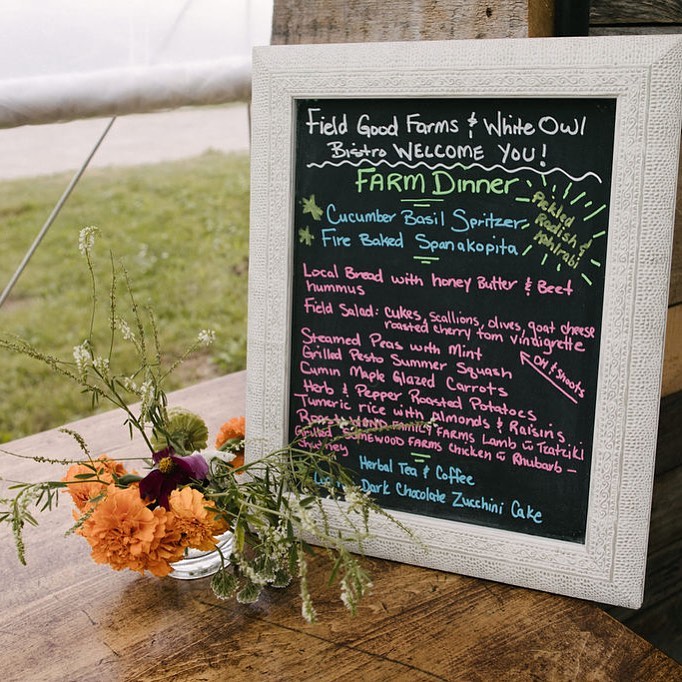 Field Good Farms & White Owl
Bistro WELCOME YOU!
FARM Dinner
Pickled
Radish &
Kohirabi
Cucumber Basil Spritzer
Fire Baked Spanakopita
Local Bread with honey Butter & Beet
hummus
Field Salad: cukes, scallions, olives, goat cheese
roasted cherry tom vindigrette
Steamed Peas with Mint
Grilled Pesto Summer Squash
OH & shoots
Cumin Maple Glazed Carrots
Herb & Pepper Roasted Potatoes
Tumeric rice with Almonds & Raisins
FAMILY FARMS Lamb w Tzatziki
Grilled SOMEWOOD FARMS Chicken w Rhubarb -
Chutney
Herbal Tea & Coffee
Dark Chocolate Zucchini Cake